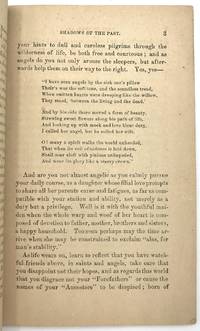 SHADOWS OF THE PAST. 3
your hints to dull and careless pilgrims through the
wilderness of life, be both free and courteous; and as
angels do you not only arouse the sleepers, but after-
wards help them on their way to the right. Yes, yes—
"I have seen angels by the sick one's pillow
Their's was the soft tone, and the soundless tread,
When smitten hearts were drooping like the willow,
They stood, 'between the living and the dead.'
And by his side there moved a form of beauty,
Strewing sweet flowers along his path of life,
And looking up with meek and love bent duty,
I called her angel, but he called her wife.
O! many a spirit walks the world unheeded,
That when its veil of sadness is laid down,
Shall soar aloft with pinions unimpeded,
And wear its glory like a starry crown."
And are you not almost angelic as you calmly pursue
your daily course, as a daughter whose filial love prompts
to share all her parents cares and fatigues, as far as com-
patible with your station and ability, not merely as a
duty but a privilege. Well is it with the youthful mai-
den when the whole warp and woof of her heart is com-
posed of devotion to father, mother, brothers and sisters,
a happy household. Too soon perhaps may the time ar-
rive when she may be constrained to exclaim "alas, for
man's stability."
As life wears on, learn to reflect that you have watch-
ful friends above, in saints and angels, take care that
you disappoint not their hopes, and as regards this world
that you disgrace not your "Forefathers" or cause the
names of your "Ancestors" to be despised; born of